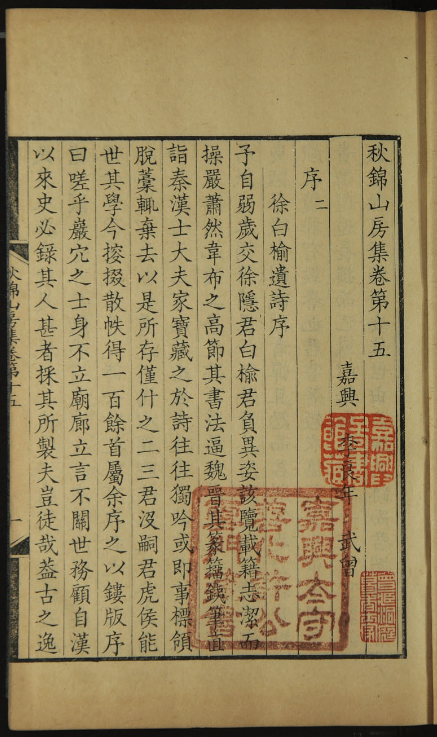 秋錦山房集卷第十五
嘉興 李良年 武曾
序二
徐白榆遺詩序
予自弱歲交徐隱君白榆君負異姿該覽載籍志潔而
操嚴蕭然韋布之高節其書法逼魏晉其篆籀鐵筆直
詣秦漢士大夫家寶藏之於詩往往獨吟或即事標領
脫藁輒棄去以是所存僅什之二三君沒嗣君虎侯能
世其學今掇散帙得一百餘首屬余序之以鏤版序
曰嗟乎巖穴之士身不立廟廊立言不關世務顧自漢
以來史必錄其人甚者採其所製夫豈徒哉葢古之逸
秋錦山房集卷第十五
一
嘉興太守